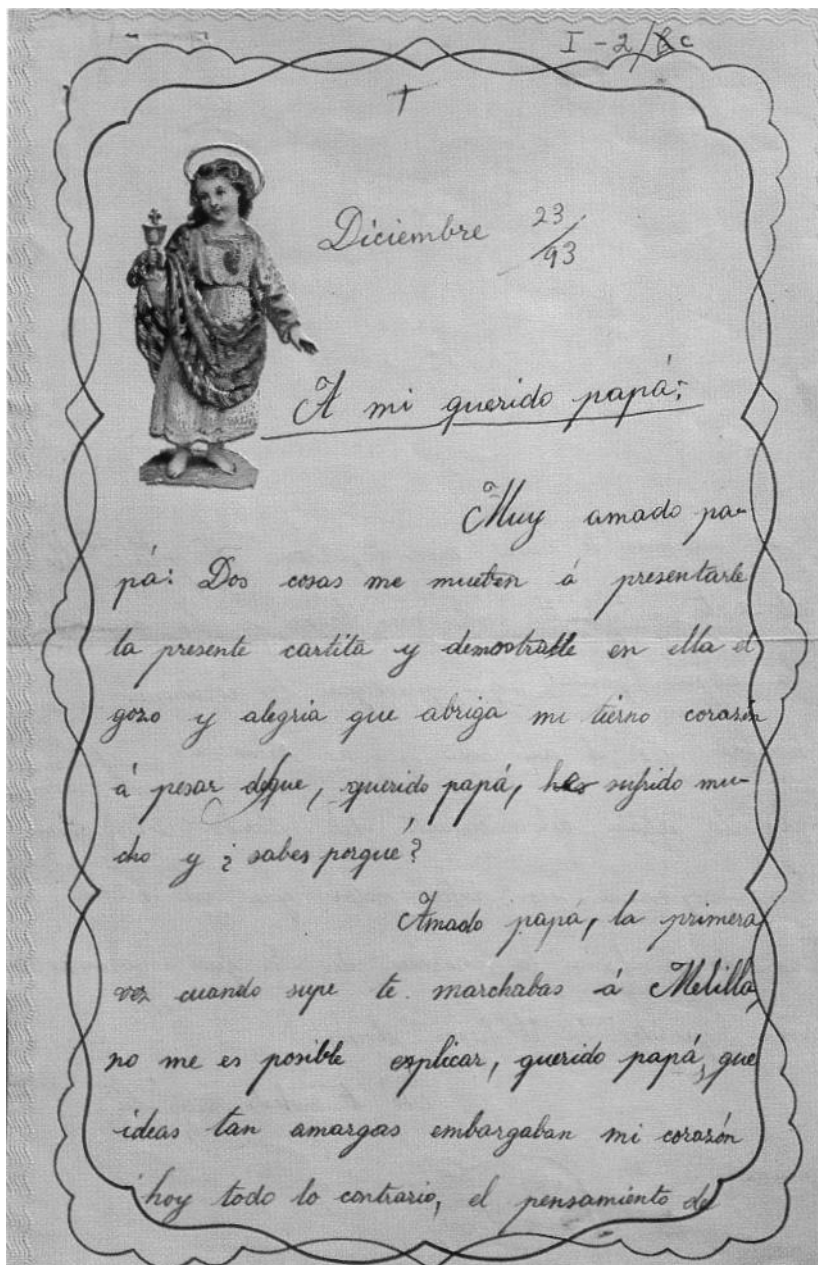 I - 2/c
Diciembre 23/93
A mi querido papá:
Muy amado pa-
pá: Dos cosas me mueben á presentarle
la presente cartita y demostrarle en ella el
gozo y alegria que abriga mi tierno corazón
á pesar deque, querido papá, has sufrido mu-
cho y ¿ sabes porque?
Amado papá, la primera
vez cuando supe te marchabas á Melilla,
no me es posible explicar, querido papá, que
ideas tan amargas embargaban mi corazón
hoy todo lo contrario, el pensamiento de